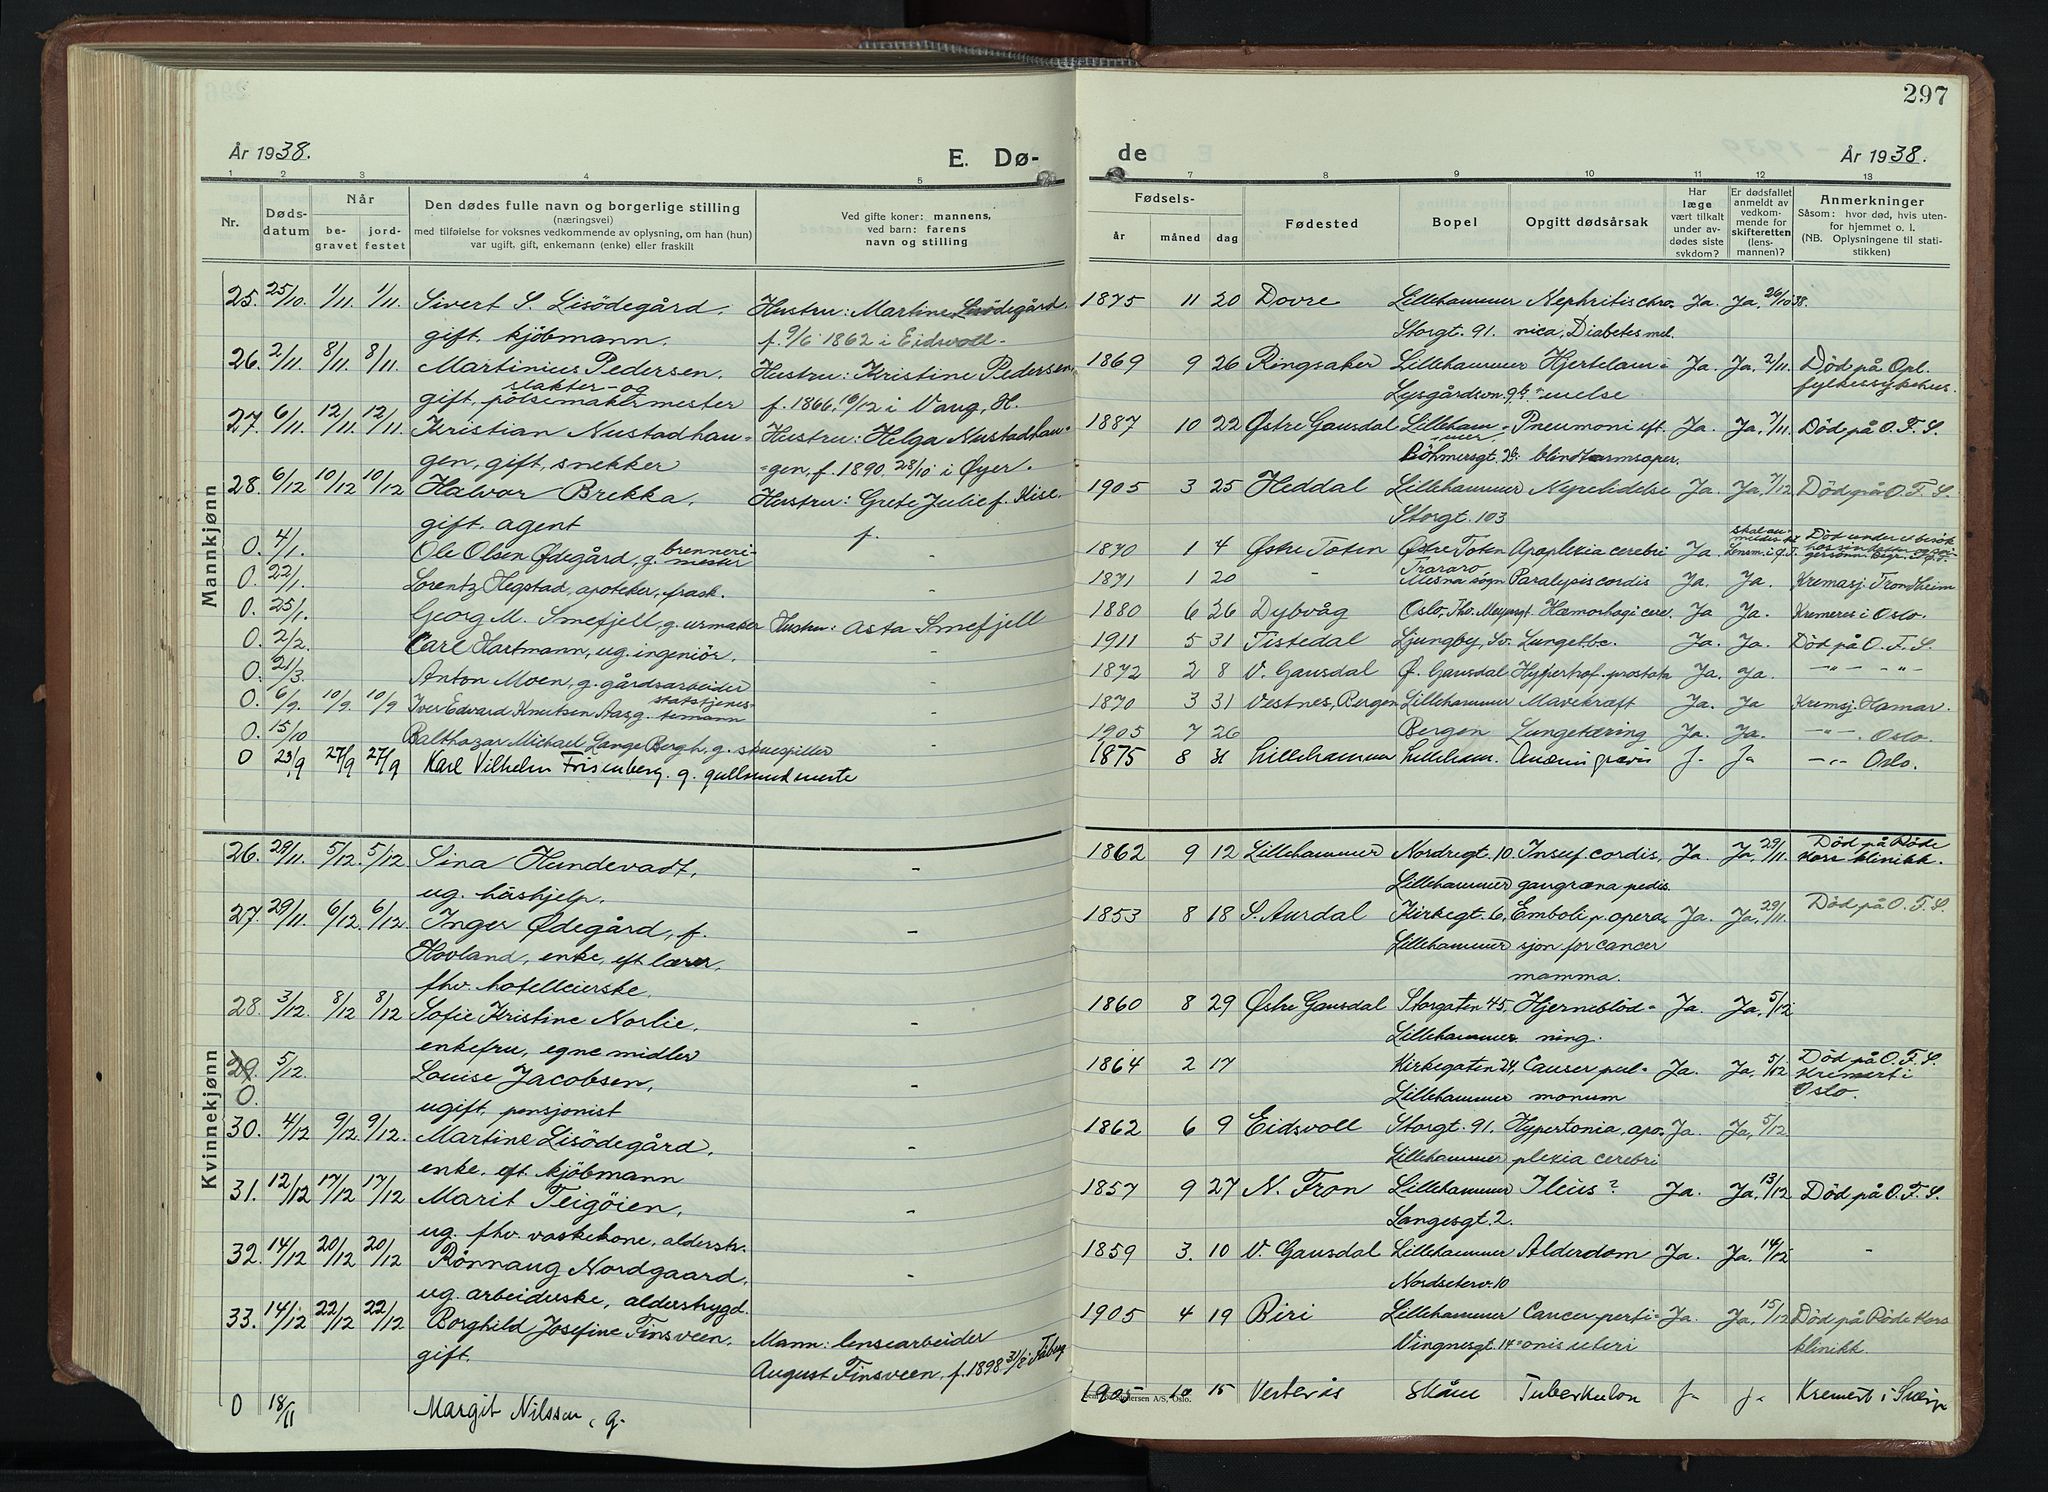 297
År 1938.
E. Dø-
de
År 1938.
1 2 3 4 5
7 8 9 10 11 12 13
Nr.
Døds-
datum
Når
be-
gravet
jord-
festet
Den dødes fulle navn og borgerlige stilling
(næringsvei)
med tilføielse for voksnes vedkommende av oplysning, om han (hun)
var ugift, gift, enkemann (enke) eller fraskilt
Ved gifte koner: mannens,
ved barn: farens
navn og stilling
Fødsels-
år måned dag
Fødested
Bopel
Opgitt dødsårsak
Har
læge
vært tilkalt
under av-
dødes siste
sykdom?
Er dødsfallet
anmeldt av
vedkom-
mende for
skifteretten
(lens-
mannen)?
Anmerkninger
Såsom: hvor død, hvis uten-
for hjemmet o. l.
(NB. Oplysningene til stati-
stikken)
Mannkjønn
25. 25/10. 1/11. 1/11. Sivert S. Lisödegård. Hustru: Martine Lisödegård. 1875 11 20 Dovre Lillehammer Nephritis chro- Ja. Ja, 26/10 38.
gift, kjöbmann. f. 9/6 1862 i Eidsvoll. Storgt. 91. nica, Diabetes mel.
26. 2/11. 8/11. 8/11. Martinius Pedersen. Hustru: Kristine Pedersen, 1869 9 26 Ringsaker Lillehammer Hjertelam- Ja. Ja, 2/11. Död på Opl.
slakter- og
gift, pölsemakermester f. 1866, 16/12 i Vang, H. Lysgårdsvn. 9b. melse fylkessykehus.
27. 6/11. 12/11. 12/11. Kristian Nustadhau- Hustru: Helga Nustadhau- 1887 10 22 Østre Gausdal Lilleham- Pneumoni eft. Ja. Ja, 7/11. Död på O. F. S.
mer.
gen, gift, snekker gen, f. 1890 28/10 i Øyer. Böhmersgt. 26. blindtarmsoper.
28. 6/12 10/12 10/12 Halvor Brekka. Hustru: Grete Julie f. Kise. 1905 3 25 Heddal Lillehammer Nyrelidelse Ja. Ja, 7/12 Död på O. F. S.
gift. agent f. Storgt. 103
0. 4/1. Ole Olsen Ødegård, g. brenneri-mester - 1870 1 4 Østre Toten Østre Toten Apoplexia cerebri Ja. Lensm. i Ø. T. Död under et besök
0. 22/1. Lorentz Hegstad, apoteker, frask. - 1871 1 20 - Mesna sogn Paralysis cordis Ja. Ja. Kremasj. Trondheim
0. 25/1. Georg M. Smefjell, g. urmaker Hustru: Asta Smefjell 1880 6 26 Dybvåg Oslo, Th. Meyersgt. Hæmorhagi cere. Ja Ja. Kremeres i Oslo.
0. 2/2. Carl Hartmann, ug. ingeniör. - 1911 5 31 Tistedal Ljungby, Sv. Lungetbc. Ja. Ja. Död på O. F. S.
0. 21/3. Anton Moen, g. gårdsarbeider - 1872 2 8 V. Gausdal Ø. Gausdal Hypertrof. prostata Ja. Ja. -"- -"-
0. 6/9. 10/9. 10/9 Iver Edvard Knutsen Aas g. statstjenes-temann - 1870 3 31 Vestnes, Bergen Lillehammer Mavekræft Ja Ja Kremsj. Hamar.
0. 15/10 Balthazar Michael Lange Bergh, g. skuespiller 1905 7 26 Bergen Lungetæring Ja Ja. -"- Oslo.
0 23/9 27/9 27/9 Karl Vilhelm Frisenberg, g. gullsmedmeste 1875 8 31 Lillehammer Lilleham. J. Ja -"- Oslo.
Kvinnekjønn
26. 29/11. 5/12. 5/12 Sina Hundevadt, - 1862 9 12 Lillehammer Nordregt. 10. Insuf. cordis, Ja. Ja, 29/11. Död på Röde
ug. håshjelp. Lillehammer gangræna pedis. Kors klinikk.
27. 29/11. 6/12. 6/12. Inger Ødegård, f. - 1853 8 18 S. Aurdal Kirkegt. 6, Emboli p. opera- Ja. Ja, 29/11. Död på O. F. S.
Hovland, enke, eft lærer, Lillehammer sjon for cancer
fhv. hotelleierske. mamma.
28. 3/12. 8/12 8/12 Sofie Kristine Norlie. - 1860 8 29 Østre Gausdal Storgaten 45, Hjerneblöd- Ja. Ja, 5/12
enkefru, egne midler Lillehammer ning.
29. 5/12. Louise Jacobsen, - 1864 2 17 Kirkegaten 24, Cancer pul- Ja. Ja. 5/12 Död på O. F. S.
0. ugift, pensjonist Lillehammer monum Kremert i Oslo.
30. 4/12 9/12. 9/12. Martine Lisödegård. - 1862 6 9 Eidsvoll Storgt. 91. Hypertonia, apo- Ja. Ja, 5/12
enke, eft. kjöbmann Lillehammer plexia cerebri
31. 12/12 17/12 17/12 Marit Teigöien, - 1857 9 27 N. Fron Lillehammer Ileus? Ja. Ja, 13/12 Död på O. F. S.
ug. fhv. vaskekone, alderstr. Langesgt. 2.
32. 14/12 20/12 20/12 Rönnaug Nordgaard. - 1859 3. 10 V. Gausdal Lillehammer Alderdom Ja Ja. 14/12 -
ug. arbeiderske, alderstrygd. Nordseterv. 10
33. 14/12 22/12 22/12 Borghild Josefine Finsveen. Mann: lensearbeider 1905 4 19 Biri Lillehammer Cancer perti- Ja. Ja, 15/12 Död på Röde Kors
gift. August Finsveen, f. 1898 31/8 i Fåberg Vingnesgt. 14 onis uteri klinikk.
0 18/11 Margit Nilssen, g. 1905 10 15 Vesterås Skåne Tuberkulon J. J. Kremert i Sverige